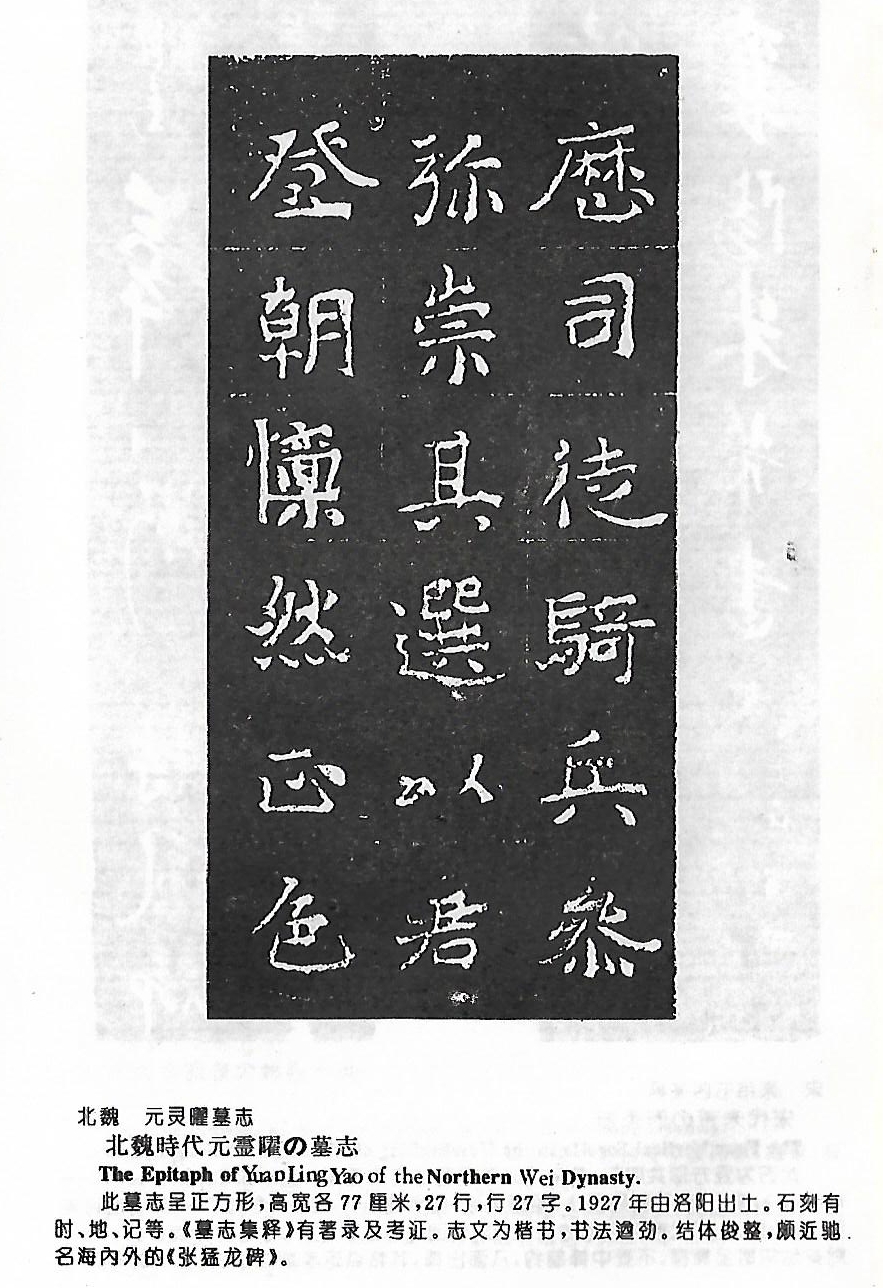 歷司徒騎兵參
弥崇其選以君
登朝懍然正色
北魏 元灵曜墓志
北魏時代元靈曜の墓志
The Epitaph of Yuan Ling Yao of the Northern Wei Dynasty.
此墓志呈正方形,高宽各77厘米,27行,行27字。1927年由洛阳出土。石刻有
时、地、记等。《墓志集释》有著录及考证。志文为楷书,书法遒劲。结体俊整,颇近驰
名海内外的《张猛龙碑》。